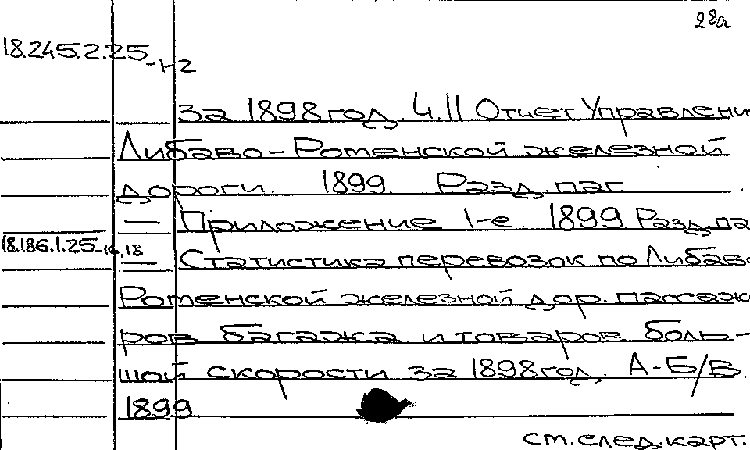 28а
18.245.2.25-1-2
за 1898 год. Ч.II Отчет Управлени
Либаво-Роменской железной
дороги. 1899. Разд. паг.
— Приложение 1-е 1899 Разд. па
18.186.1.25-16,18
— Статистика перевозок по Либаво
Роменской железной дор. пассаж
ров багажа и товаров боль-
шой скорости за 1898 год. А-Б/В.
1899
см. след. карт.